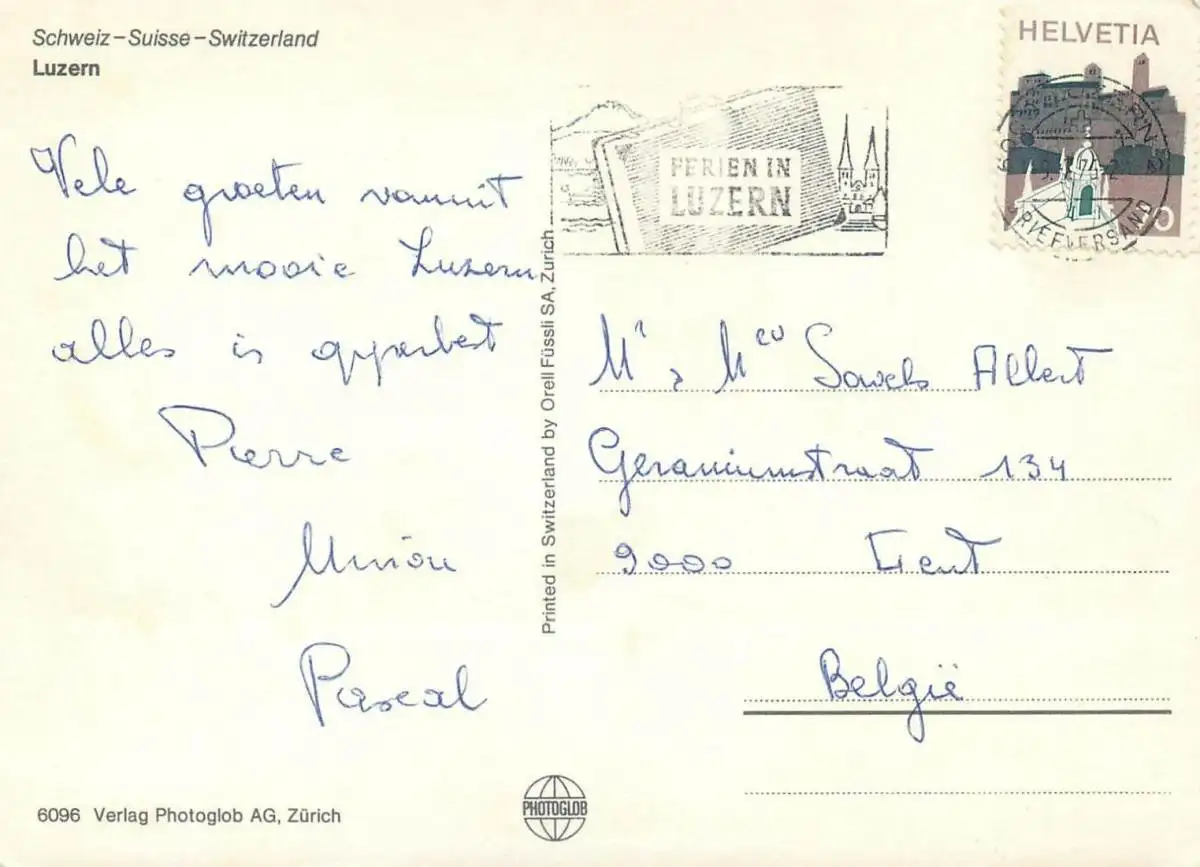 Schweiz–Suisse–Switzerland
Luzern
HELVETIA
FERIEN IN
LUZERN
BRIEFVERSAND
Vele groeten vanuit
het mooie Luzern
alles is opperbest
Pierre
Pascal
Printed in Switzerland by Orell Füssli SA, Zürich
Mr & Mev Albert
Geraniumstraat 134
9000 Gent
België
6096 Verlag Photoglob AG, Zürich
PHOTOGLOB